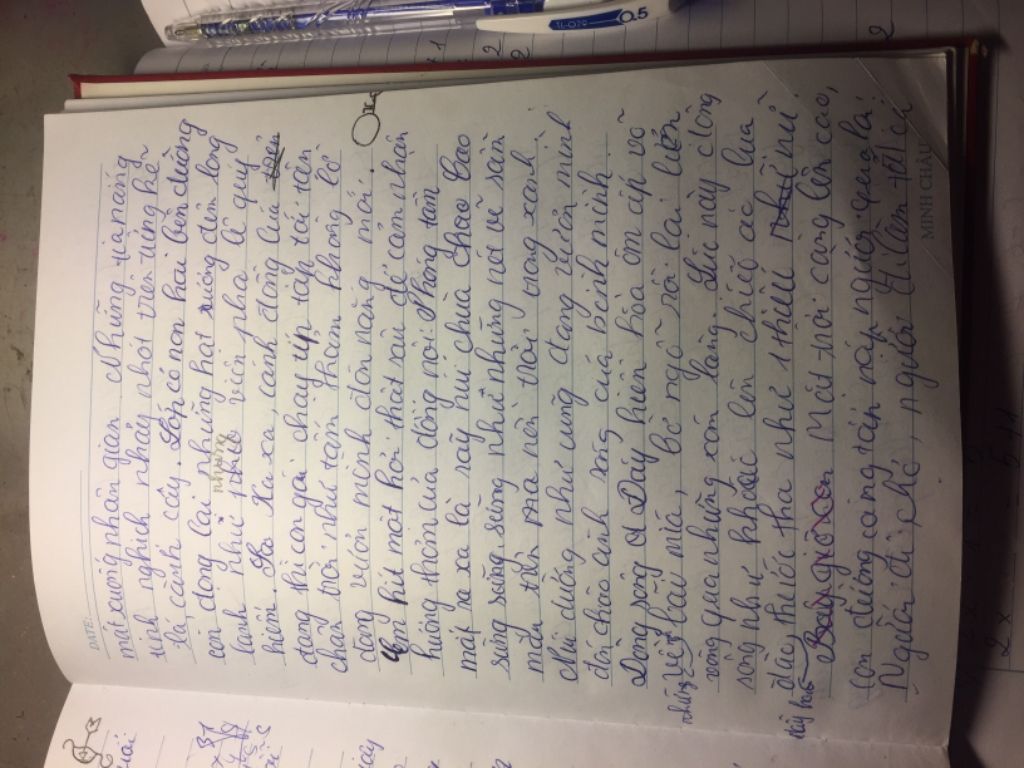 DATE:
mắt xuống nhân gian. Những tia nắng
tinh nghịch nhảy nhót trên từng kẽ
lá, cành cây. Lớp cỏ non hai bên đường
còn đọng lại những hạt sương đêm long
lanh như những viên pha lê quý
hiếm. Xa xa, cánh đồng lúa
đang thì con gái chạy típ tắp tới tận
chân trời như tấm thảm khổng lồ
đang vươn mình đón nắng mới.
Em hít một hơi thật sâu để cảm nhận
hương thơm của đồng nội. Phóng tầm
mắt ra xa là dãy núi chùa Chao cao
sừng sững sừng như những nét vẽ sẫm
mềm trên nền trời trong xanh
Núi dường như cũng đang vươn mình
dậy chào ánh sáng của bình minh.
Dòng sông Đáy hiền hòa ôm ấp vỗ
những bãi mía, bờ ngô rồi lại lượn
vòng qua những xóm làng. Lúc này dòng
sông như khoác lên chiếc áo lụa
đào thướt tha như thiếu nữ
Mặt trời càng lên cao,
con đường càng tấp nập người qua lại
Người đi bộ, người đi làm tất cả
MINH CHÂU
0.5